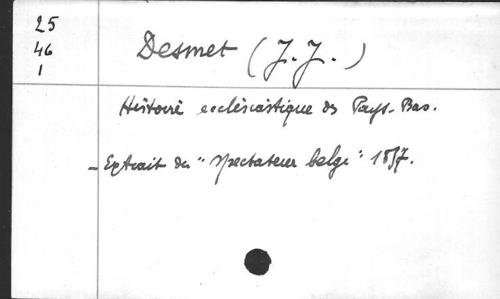 25
46
1
Desmet (J. J.)
Histoire ecclésiastique des Pays-Bas.
- Extrait du "Spectateur belge"